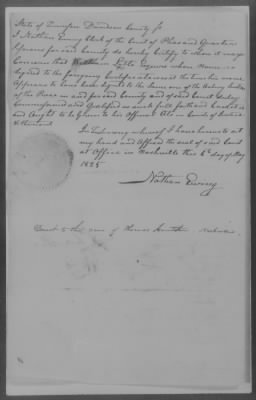 State of Tennessee Davidson County Sc
I Nathan Ewing Clerk of the Court of Pleas and Quarter
Sessions for said County do hereby Certify to whom it may
Concern that William Lytle Esquire whose Name is
Signed to the foregoing Certificate was at the time the same
Appears to have been Signed to the same one of the Acting Justices
of the Peace in and for said County and of said Court duly
Commissioned and Qualified as such full faith and Credit is
and Ought to be Given to his Official Acts
In testimony whereof I have hereunto set
my hand and Affixed the seal of said Court
at Office in Nashville this day of May
1825
Nathan Ewing
to the care of Thomas